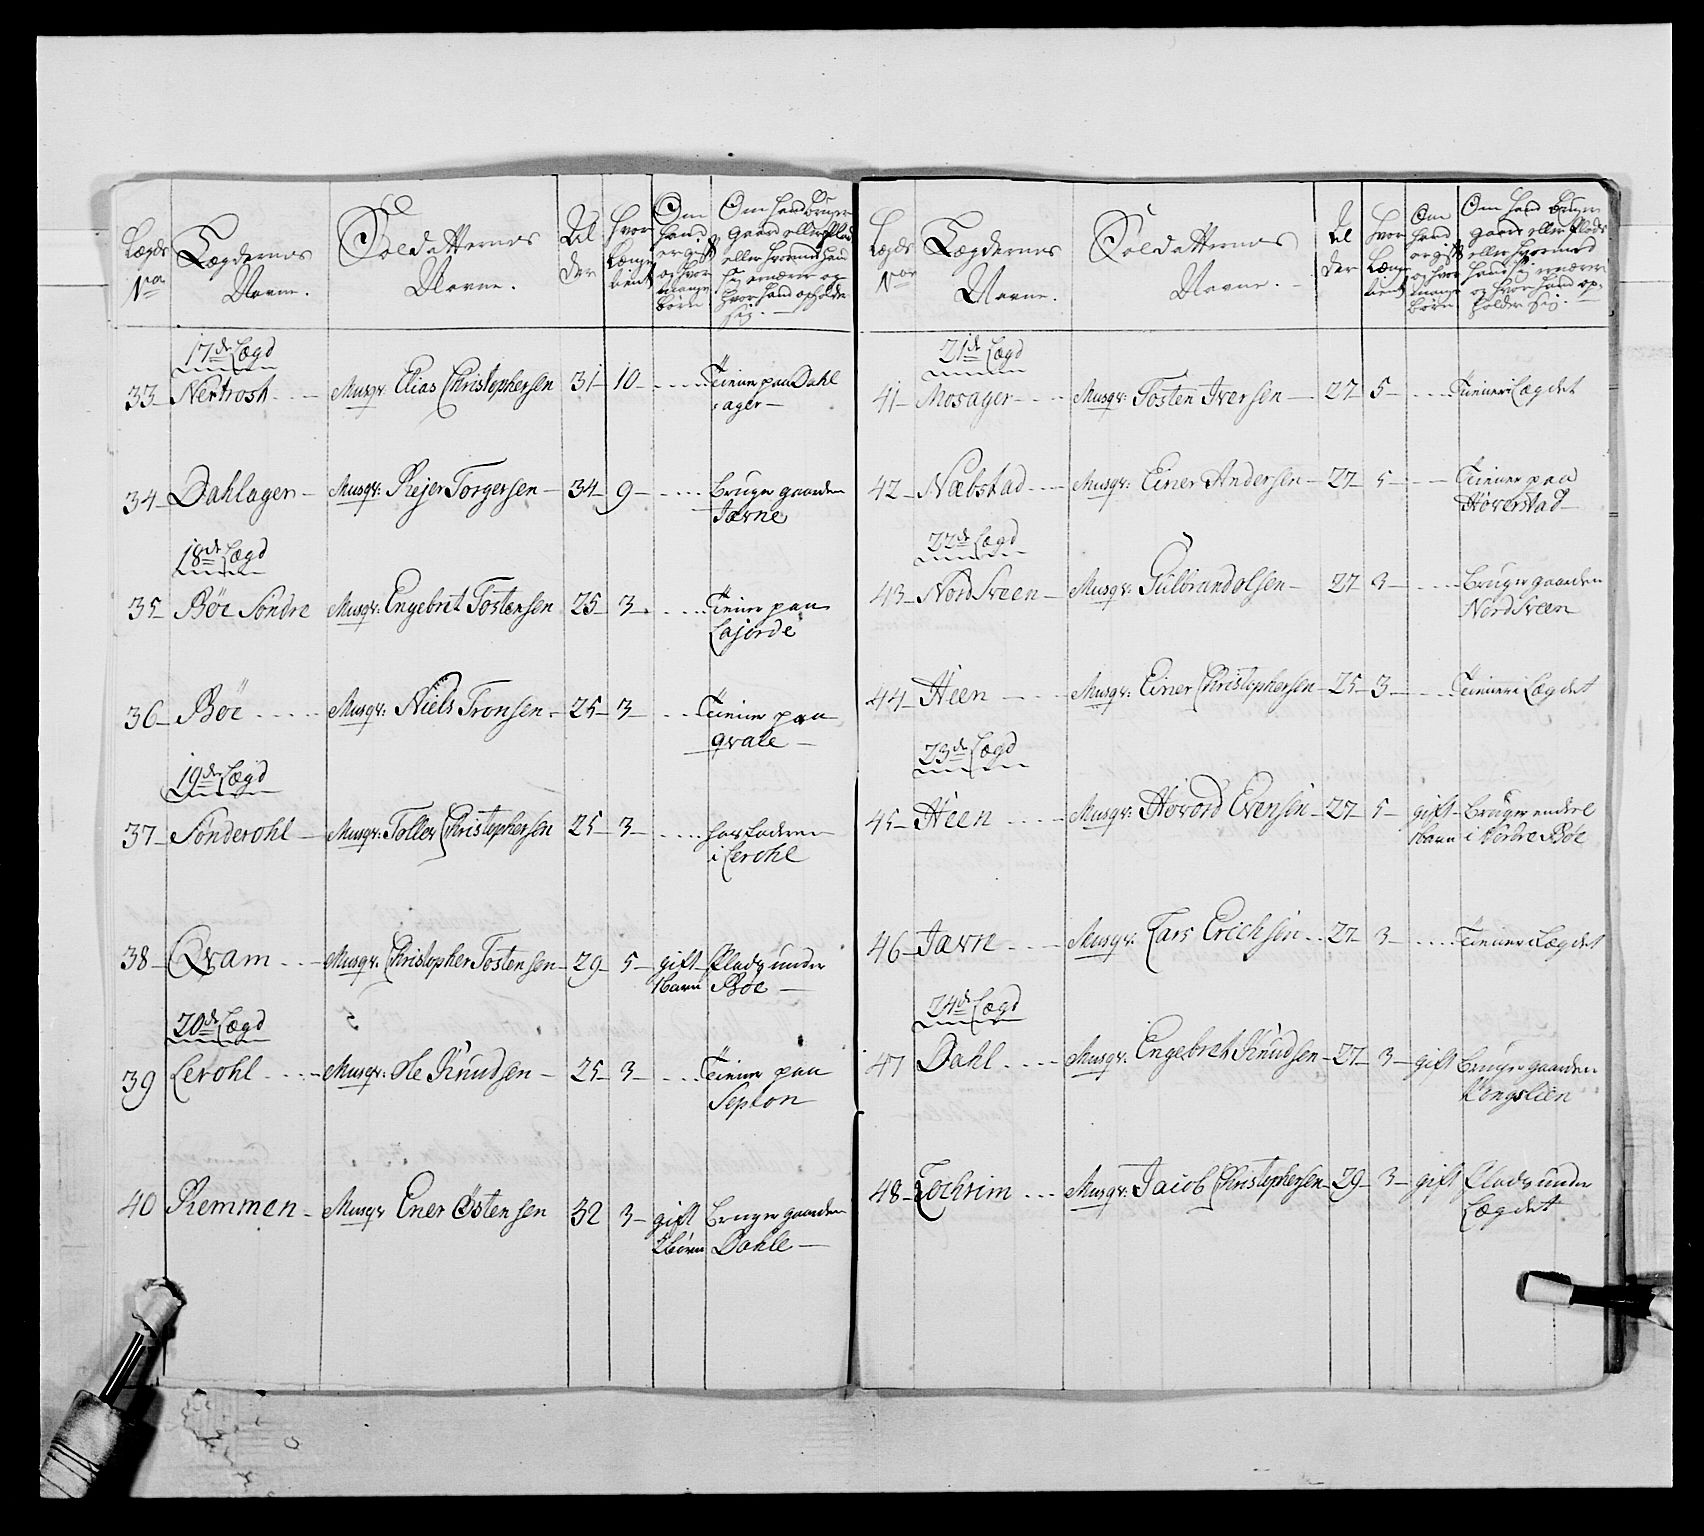 Lægds Nos
Lægdernes Navne.
Soldatternes Navne.
Al der
Hvor Længe tient
Om hand er gift og hvor mange børn
Om hand Bruger Gaard eller Plads eller hvormed hand sig ernærer og hvor hand opholder sig.
17de Lægd
33 Nertrost Musqr. Elias Christophersen 31 10 Tiener paa Dahl
ager
34 Dahlagen Musqr: Rejer Torgersen 34 9 Bruger gaarden
Javne
18de Lægd
35 Böe Söndre Musqr: Engebret Tostensen 25 3 Tiener paa
Lajorde
36 Böe Musqr: Niels Tronsen 25 3 Tiener paa
qvale
19de Lægd
37 Sönderohl Musqr: Tollev Christophersen 25 3 hos Faderen
i Lerohl
38 Qvam Musqr: Christopher Tostensen 29 5 gift Plads under
1 barn Böe
20de Lægd
39 Lerohl Musqr: Ole Knudsen 25 3 Tiener paa
Septon
40 Remmen Musqr Ener Östensen 32 3 gift Bruger gaarden
2 börn Dahle
Lægds Nos
Lægdernes Navne.
Soldatternes Navne.
Al der
Hvor Længe tient
Om hand er gift og hvor mange börn
Om hand bruger gaard eller Plads eller hvormed hand sig ernærer og hvor hand opholder sig.
21de Lægd
41 Mosager Musqr: Tosten Iversen 27 5 Tiener i Lægdet
42 Næbstad Musqr: Einer Andersen 27 5 Tiener paa
Höverstad
22de Lægd
43 Nord Sveen Musqr: Gulbrand olsen 27 3 Bruger gaarden
Nord Sveen
44 Heen Musqr: Einer Christophersen 25 3 Tiener i Lægdet
23de Lægd
45 Heen Musqr: Hovord Evensen 27 5 gift Bruger en deel
1 barn i Nordre Böe
46 Javne Musqr. Lars Erichsen 27 3 Tiener i Lægdet
24de Lægd
47 Dahl Musqr: Engebret Knudsen 27 3 gift Bruger gaarden
Kongslien
48 Lochrim Musqr: Jacob Christophersen 29 3 gift Plads under
Lægdet